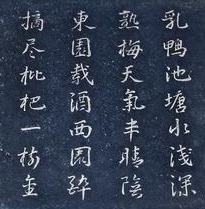 乳鸭池塘水浅深
熟梅天氣半晴陰
東園載酒西園醉
摘尽枇杷一樹金